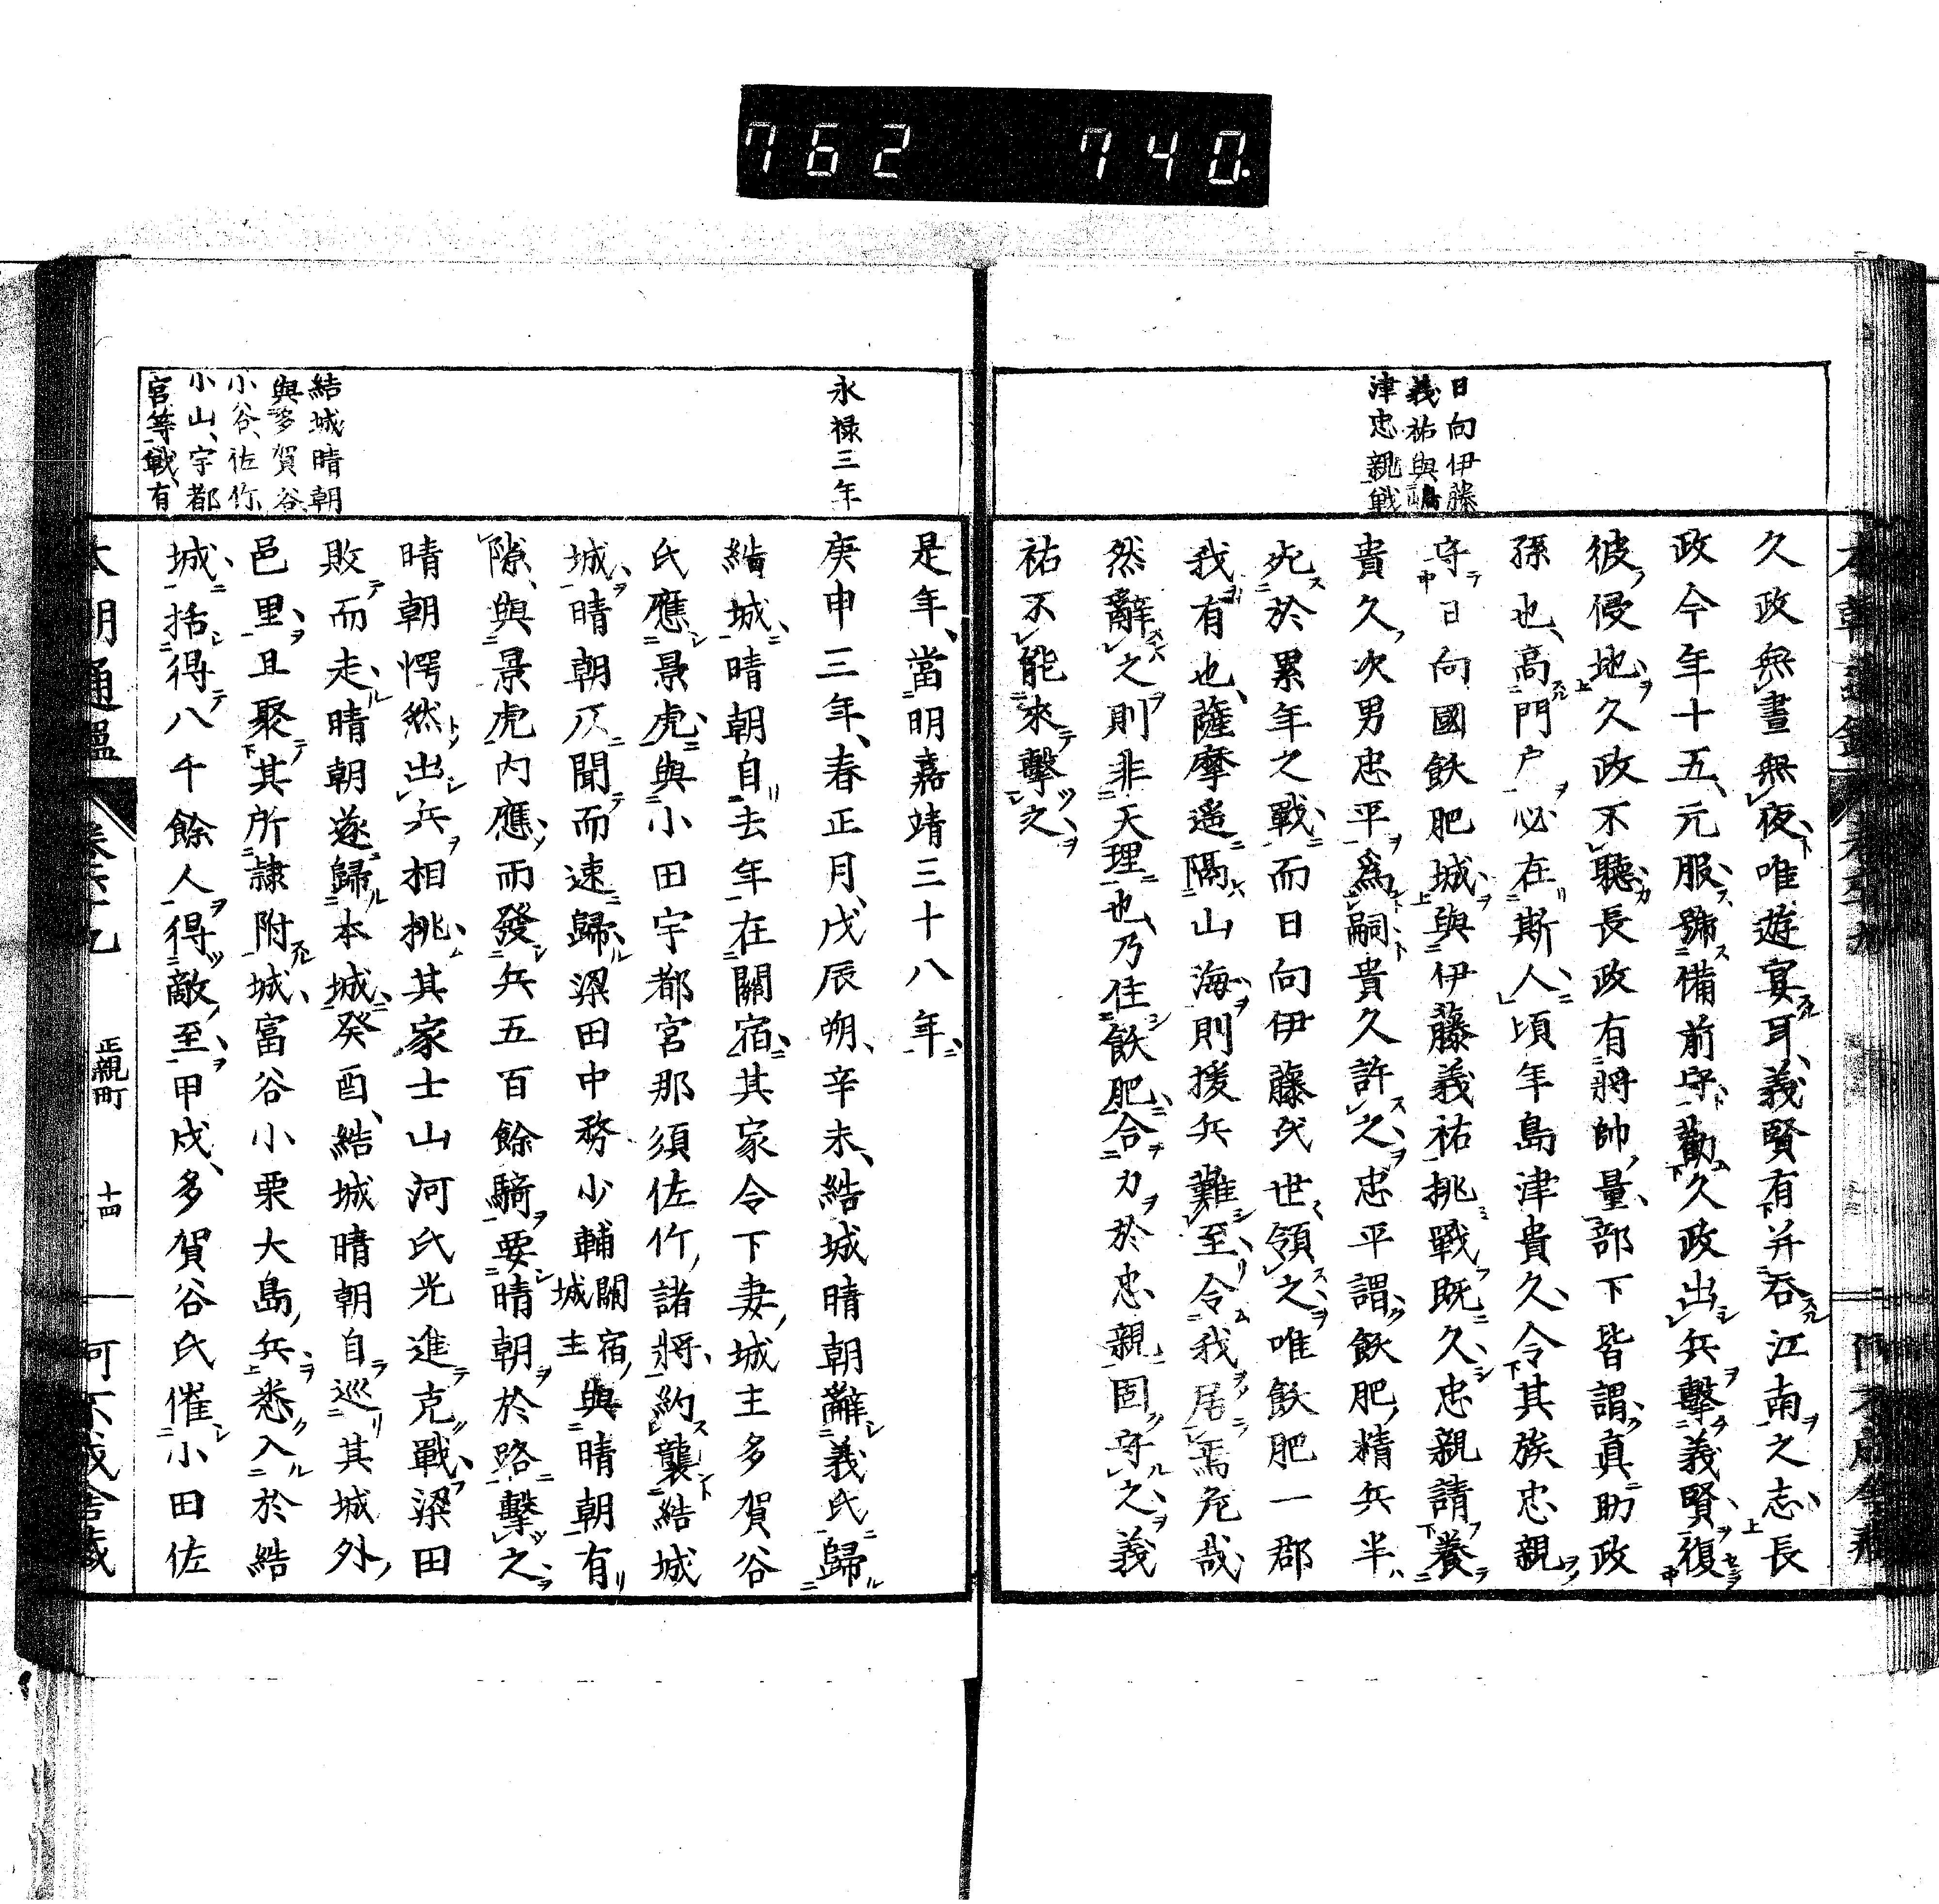 762 740.
日向伊藤
義祐與嶋
津忠親戦
久政無晝無夜唯遊宴耳義賢有并呑江南之志長
政今年十五元服號備前守勸久政出兵擊義賢復
彼侵地久政不聽長政有將帥量部下皆謂真助政
孫也高門戸必在斯人頃年島津貴久令其族忠親
守日向國飫肥城與伊藤義祐挑戰既久忠親請養
貴久次男忠平爲嗣貴久許之忠平謂飫肥精兵半
死於累年之戰而日向伊藤氏世領之唯飫肥一郡
我有也薩摩遥隔山海則援兵難至令我居焉危哉
然辭之則非天理也乃住飫肥合力於忠親固守之義
祐不能來擊之
永禄三年
是年當明嘉靖三十八年
庚申三年春正月戊辰朔辛未結城晴朝辭義氏歸
結城晴朝自去年在關宿其家令下妻城主多賀谷
氏應景虎與小田宇都宮那須佐竹諸將約襲結城
城晴朝仄聞而速歸梁田中務少輔關宿城主與晴朝有
隙與景虎内應而發兵五百餘騎要晴朝於路擊之
晴朝愕然出兵相挑其家士山河氏光進克戰梁田
敗而走晴朝遂歸本城癸酉結城晴朝自巡其城外
邑里且聚其所隷附城富谷小栗大島兵悉入於結
城括得八千餘人得敵至甲戌多賀谷氏催小田佐
結城晴朝
與多賀谷
小谷佐竹
小山宇都
宮等戦有
本朝通鑑 正親町 十四